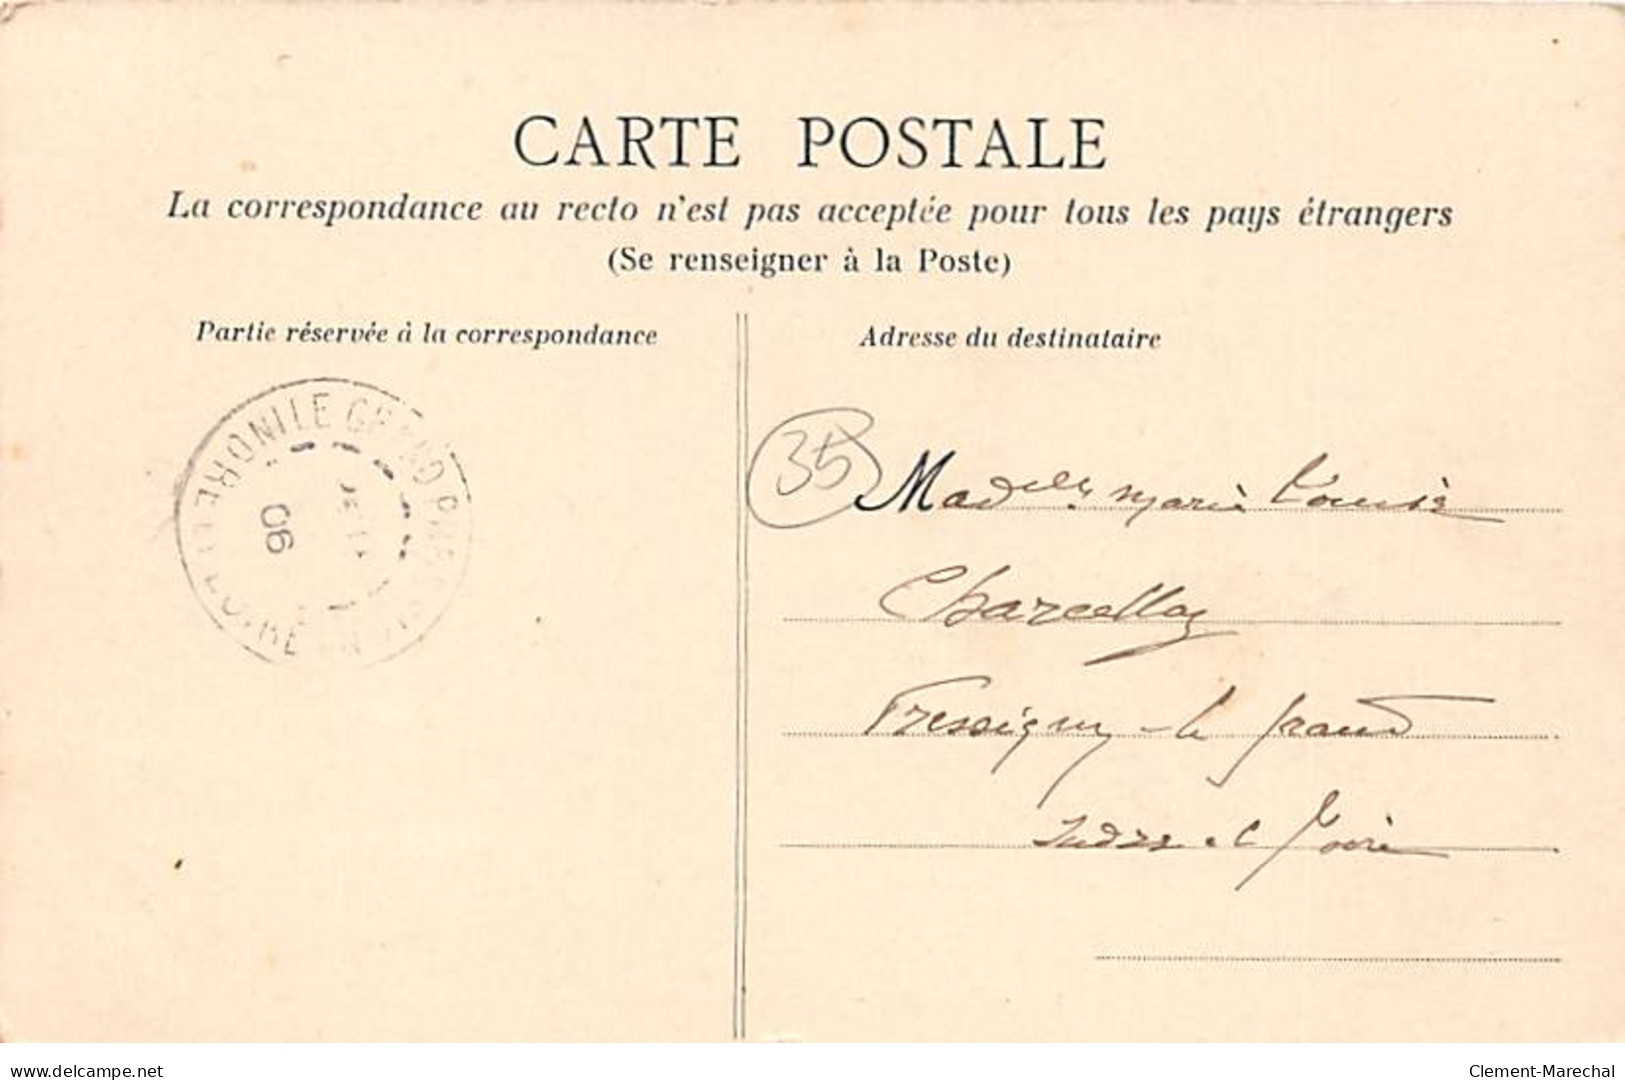 CARTE POSTALE
La correspondance au recto n'est pas acceptée pour tous les pays étrangers
(Se renseigner à la Poste)
Partie réservée à la correspondance
Adresse du destinataire
LE GRAND
06
35
Madelle Marie Louise
Pressigny-le grand
Indre et Loire
delcampe.net
Clement-Marechal